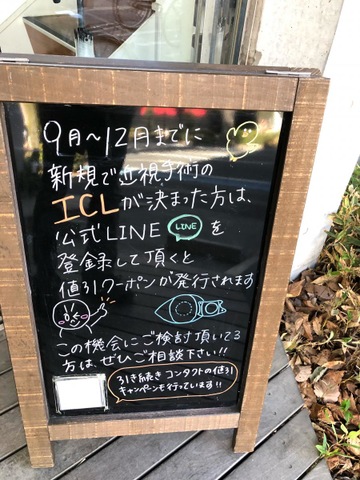 9月～12月までに
新規で近視手術の
ICLが決まった方は、
公式LINE LINE を
登録して頂くと
値引クーポンが発行されます
この機会にご検討頂いてる
方は、ぜひご相談下さい!!
引き続きコンタクトの値引
キャンペーンも行っています!!